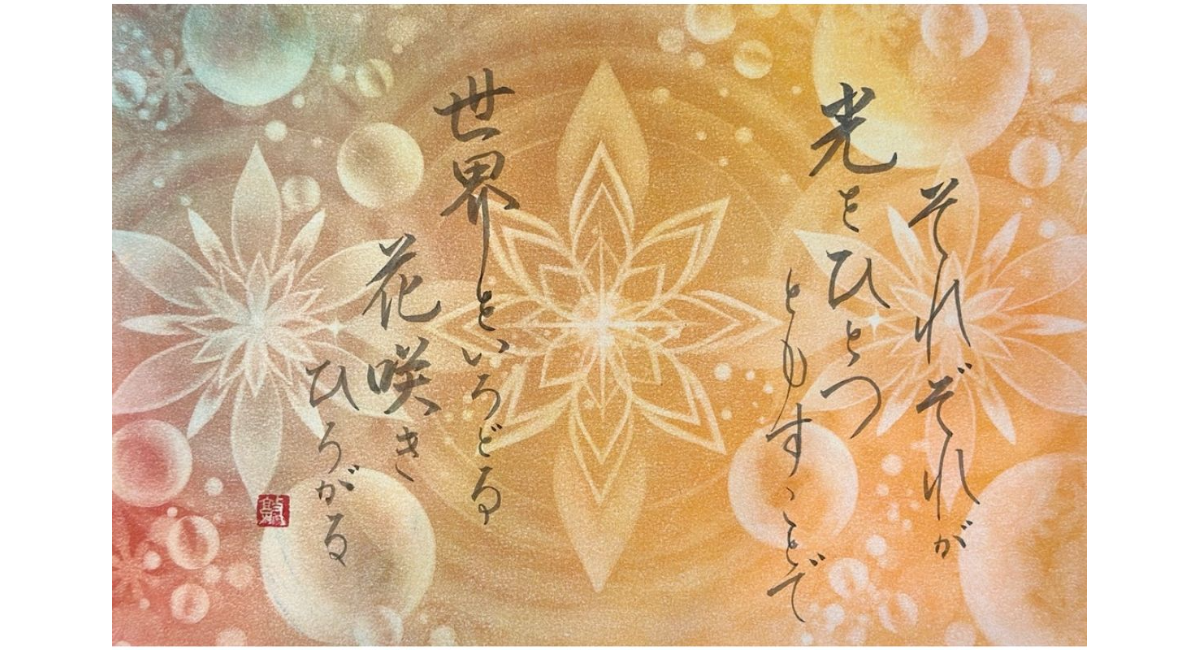 それぞれが
光をひとつ
ともすことで
世界をいろどる
花咲き
ひろがる